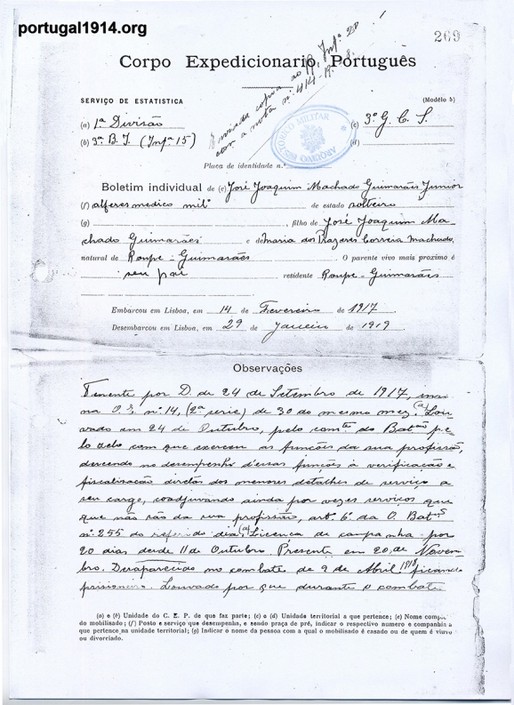 portugal1914.org
269
Corpo Expedicionario Português
SERVIÇO DE ESTATISTICA
(Modêlo b)
(a) 1ª Divisão
(c) 3º G. C. S.
(b) 3ª B. I. (Infª 15)
(d)
ARQUIVO HISTÓRICO MILITAR
Placa de identidade n.º
Boletim individual de (e) José Joaquim Machado Guimarães Junior
(f) alferes medico milº de estado solteiro
(g) filho de José Joaquim Ma-
chado Guimarães e de Maria dos Prazeres Correia Machado
natural de Ronfe - Guimarães O parente vivo mais proximo é
seu pai residente Ronfe - Guimarães
Embarcou em Lisboa, em 14 de Fevereiro de 1917
Desembarcou em Lisboa, em 29 de Janeiro de 1919
Observações
Tenente por D de 24 de Setembro de 1917,
na O. E. n.º 14, (2ª serie) de 30 do mesmo mez. (a) Lou-
vado em 24 de Outubro, pelo comte do Batão pe-
lo zelo com que exerceu as funções da sua profissão,
descendo no desempenho d'essas funções á verificação e
fiscalisação diréta dos menores detalhes de serviço a
seu cargo, coadjuvando ainda por vezes serviços que
que não são da sua profissão, artº 6º da O. Batão
nº 255 do referido dia. (a) Licença de campanha por
20 dias desde 11 de Outubro. Presente em 20 de Novem-
bro. Desaparecido no combate de 9 de Abril 1918 ficando
prisioneiro. Louvado por que durante o combate
(a) e (b) Unidade do C. E. P. de que faz parte; (c) e (d) Unidade territorial a que pertence; (e) Nome
do mobilisado; (f) Posto e serviço que desempenha, e sendo praça de pré, indicar o respectivo numero e companhia a
que pertence na unidade territorial; (g) Indicar o nome da pessoa com a qual o mobilisado é casado ou de quem é viuvo
ou divorciado.